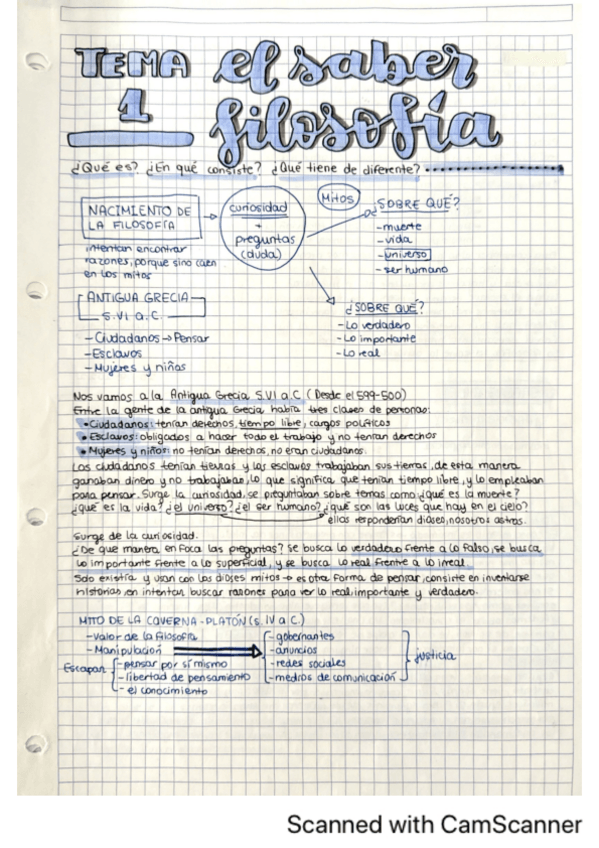 TEMA 1 el saber
filosofía
¿Qué es? ¿En qué consiste? ¿Qué tiene de diferente?
NACIMIENTO DE
LA FILOSOFÍA
intentan encontrar
razones, porque sino caen
en los mitos
curiosidad
+
preguntas
(duda)
Mitos
¿SOBRE QUÉ?
-muerte
-vida
-universo
-ser humano
¿SOBRE QUÉ?
-Lo verdadero
-Lo importante
-Lo real
ANTIGUA GRECIA
S.VI a.C.
-Ciudadanos → Pensar
-Esclavos
-Mujeres y niños
Nos vamos a la Antigua Grecia S.VI a.C (Desde el 599-500)
Entre la gente de la antigua Grecia había tres clases de personas:
•Ciudadanos: tenían derechos, tiempo libre, cargos políticos
•Esclavos: obligados a hacer todo el trabajo y no tenían derechos
•Mujeres y niños: no tenían derechos, no eran ciudadanos.
Los ciudadanos tenían tierras y los esclavos trabajaban sus tierras, de esta manera
ganaban dinero y no trabajaban, lo que significa que tenían tiempo libre, y lo empleaban
para pensar. Surge la curiosidad, se preguntaban sobre temas como ¿qué es la muerte?
¿qué es la vida? ¿el universo? ¿el ser humano? ¿qué son las luces que hay en el cielo?
ellos responderían dioses, nosotros astros.
Surge de la curiosidad.
¿De que manera enfoca las preguntas? Se busca lo verdadero frente a lo falso, se busca
lo importante frente a lo superficial, y se busca lo real frente a lo irreal
Solo existía y usan con los dioses mitos → es otra forma de pensar, consiste en inventarse
historias, en intentar buscar razones para ver lo real, importante y verdadero.
MITO DE LA CAVERNA - PLATÓN (S. IV a C.)
-Valor de la filosofía
-Manipulación
-gobernantes
-anuncios
-redes sociales
-medios de comunicación
justicia
Escapan
-pensar por sí mismo
-libertad de pensamiento
-el conocimiento
Scanned with CamScanner